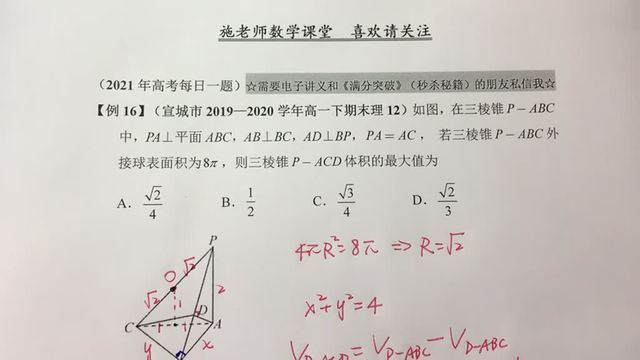 施老师数学课堂 喜欢请关注
(2021年高考每日一题)☆需要电子讲义和《满分突破》(秒杀秘籍)的朋友私信我☆
【例16】(宣城市2019—2020学年高一下期末理12)如图,在三棱锥P-ABC
中,PA⊥平面ABC,AB⊥BC,AD⊥BP,PA=AC,若三棱锥P-ABC外
接球表面积为8π,则三棱锥P-ACD体积的最大值为
A. √2/4 B. 1/2 C. √3/4 D. √2/3
4πR²=8π ⇒ R=√2
x²+y²=4
P
O √2
√2 2
D
C 1 1 A
y x
= V_{D-ABC} - V_{D-ABC}